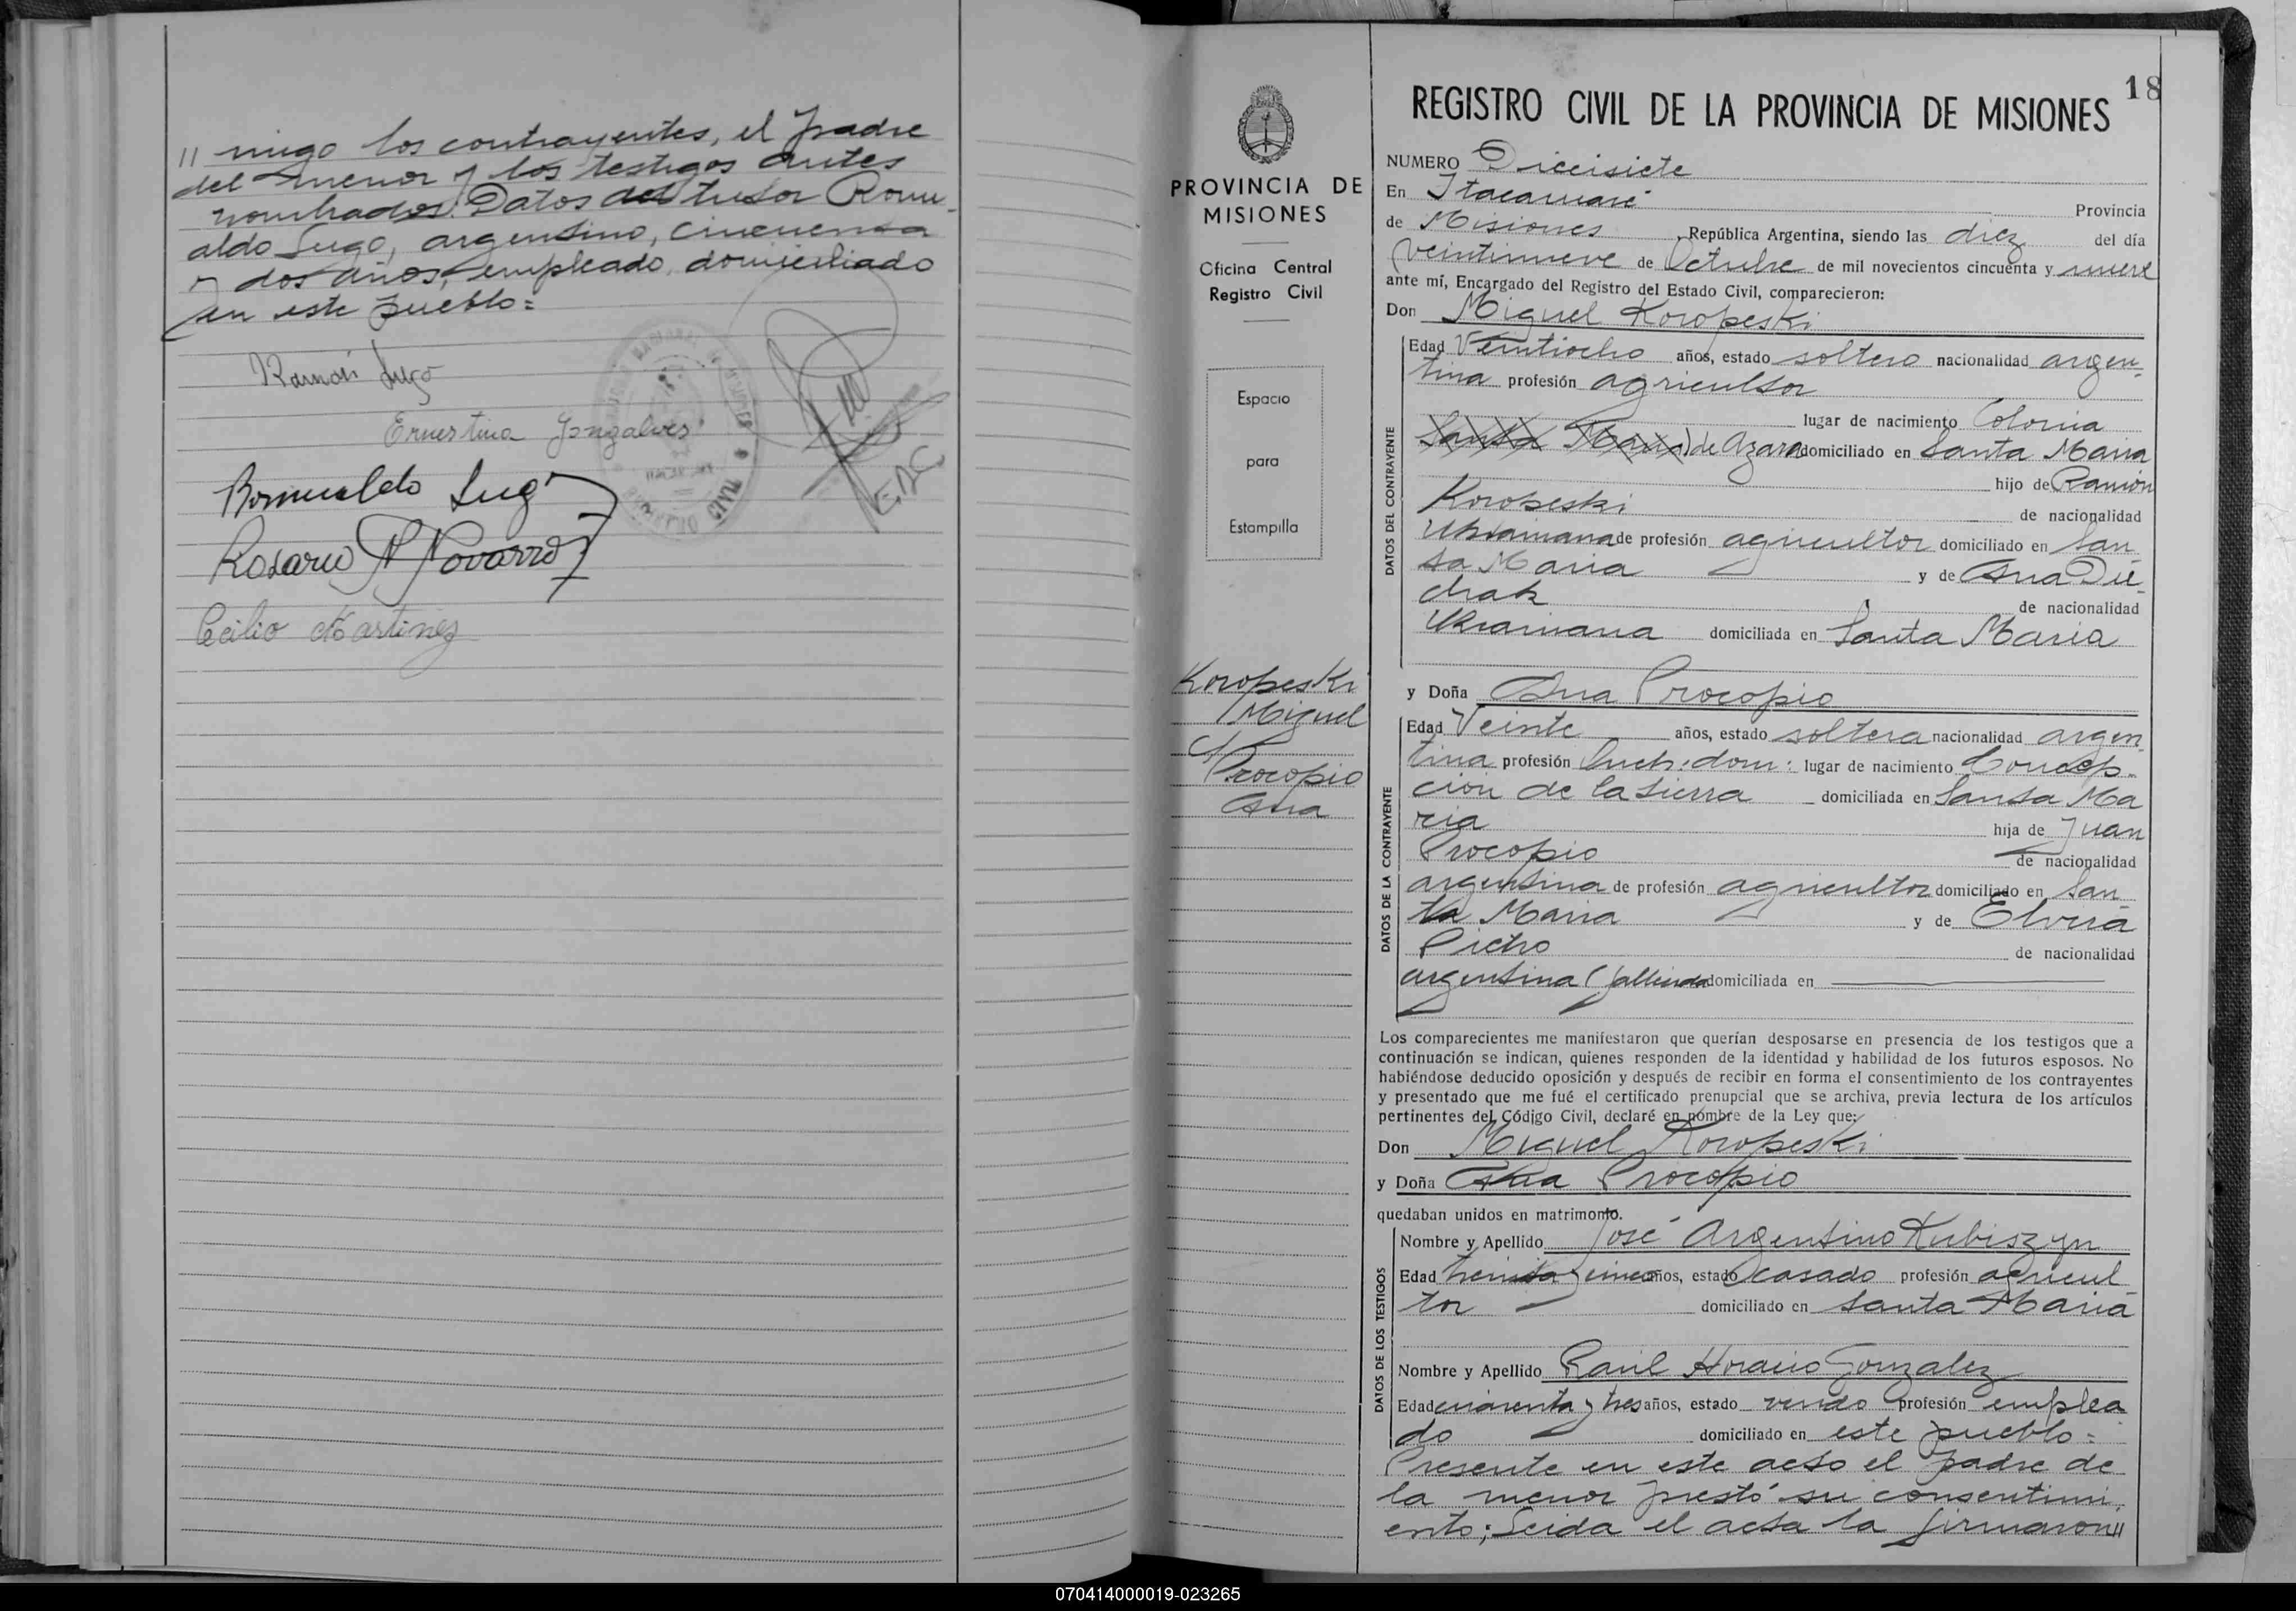 // migo los contrayentes, el padre
del menor y los testigos antes
nombrados. Datos del tutor Romu-
aldo Lugo, argentino, cincuenta
y dos años, empleado, domiciliado
en este pueblo=
Ramón Lugo
Ernestina Gonzalves
Romualdo Lugo
Rosario N Novarro
Cecilio Martinez
18
REGISTRO CIVIL DE LA PROVINCIA DE MISIONES
PROVINCIA DE
MISIONES
Oficina Central
Registro Civil
Espacio
para
Estampilla
Koropeski
Miguel
c/
Procopio
Ana
NUMERO Diecisiete
En Itacaruaré Provincia
de Misiones, República Argentina, siendo las diez del día
veintinueve de Octubre de mil novecientos cincuenta y nueve
ante mí, Encargado del Registro del Estado Civil, comparecieron:
Don Miguel Koropeski
DATOS DEL CONTRAYENTE
Edad Veintiocho años, estado soltero nacionalidad argen-
tina profesión agricultor
lugar de nacimiento Colonia
Santa Maria) de Azara domiciliado en Santa Maria
hijo de Ramón
Koropeski de nacionalidad
Ukraniana de profesión agricultor domiciliado en San
ta Maria y de Ana Die-
chak de nacionalidad
Ukraniana domiciliada en Santa Maria
y Doña Ana Procopio
DATOS DE LA CONTRAYENTE
Edad Veinte años, estado soltera nacionalidad argen-
tina profesión Queh: dom: lugar de nacimiento Concep-
ción de la Sierra domiciliada en Santa Ma
ria hija de Juan
Procopio de nacionalidad
argentina de profesión agricultor domiciliado en San
ta Maria y de Elvira
Pietro de nacionalidad
argentina (fallecida domiciliada en
Los comparecientes me manifestaron que querían desposarse en presencia de los testigos que a
continuación se indican, quienes responden de la identidad y habilidad de los futuros esposos. No
habiéndose deducido oposición y después de recibir en forma el consentimiento de los contrayentes
y presentado que me fué el certificado prenupcial que se archiva, previa lectura de los artículos
pertinentes del Código Civil, declaré en nombre de la Ley que:
Don Miguel Koropeski
y Doña Ana Procopio
quedaban unidos en matrimonio.
DATOS DE LOS TESTIGOS
Nombre y Apellido José Argentino Kubiszyn
Edad treinta y cinco años, estado casado profesión agricul
tor domiciliado en Santa Maria
Nombre y Apellido Raúl Horacio Gonzalez
Edad cuarenta y tres años, estado viudo profesión emplea
do domiciliado en este pueblo=
Presente en este acto el padre de
la menor prestó su consentimi-
ento; Leida el acta la firmaron//
070414000019-023265